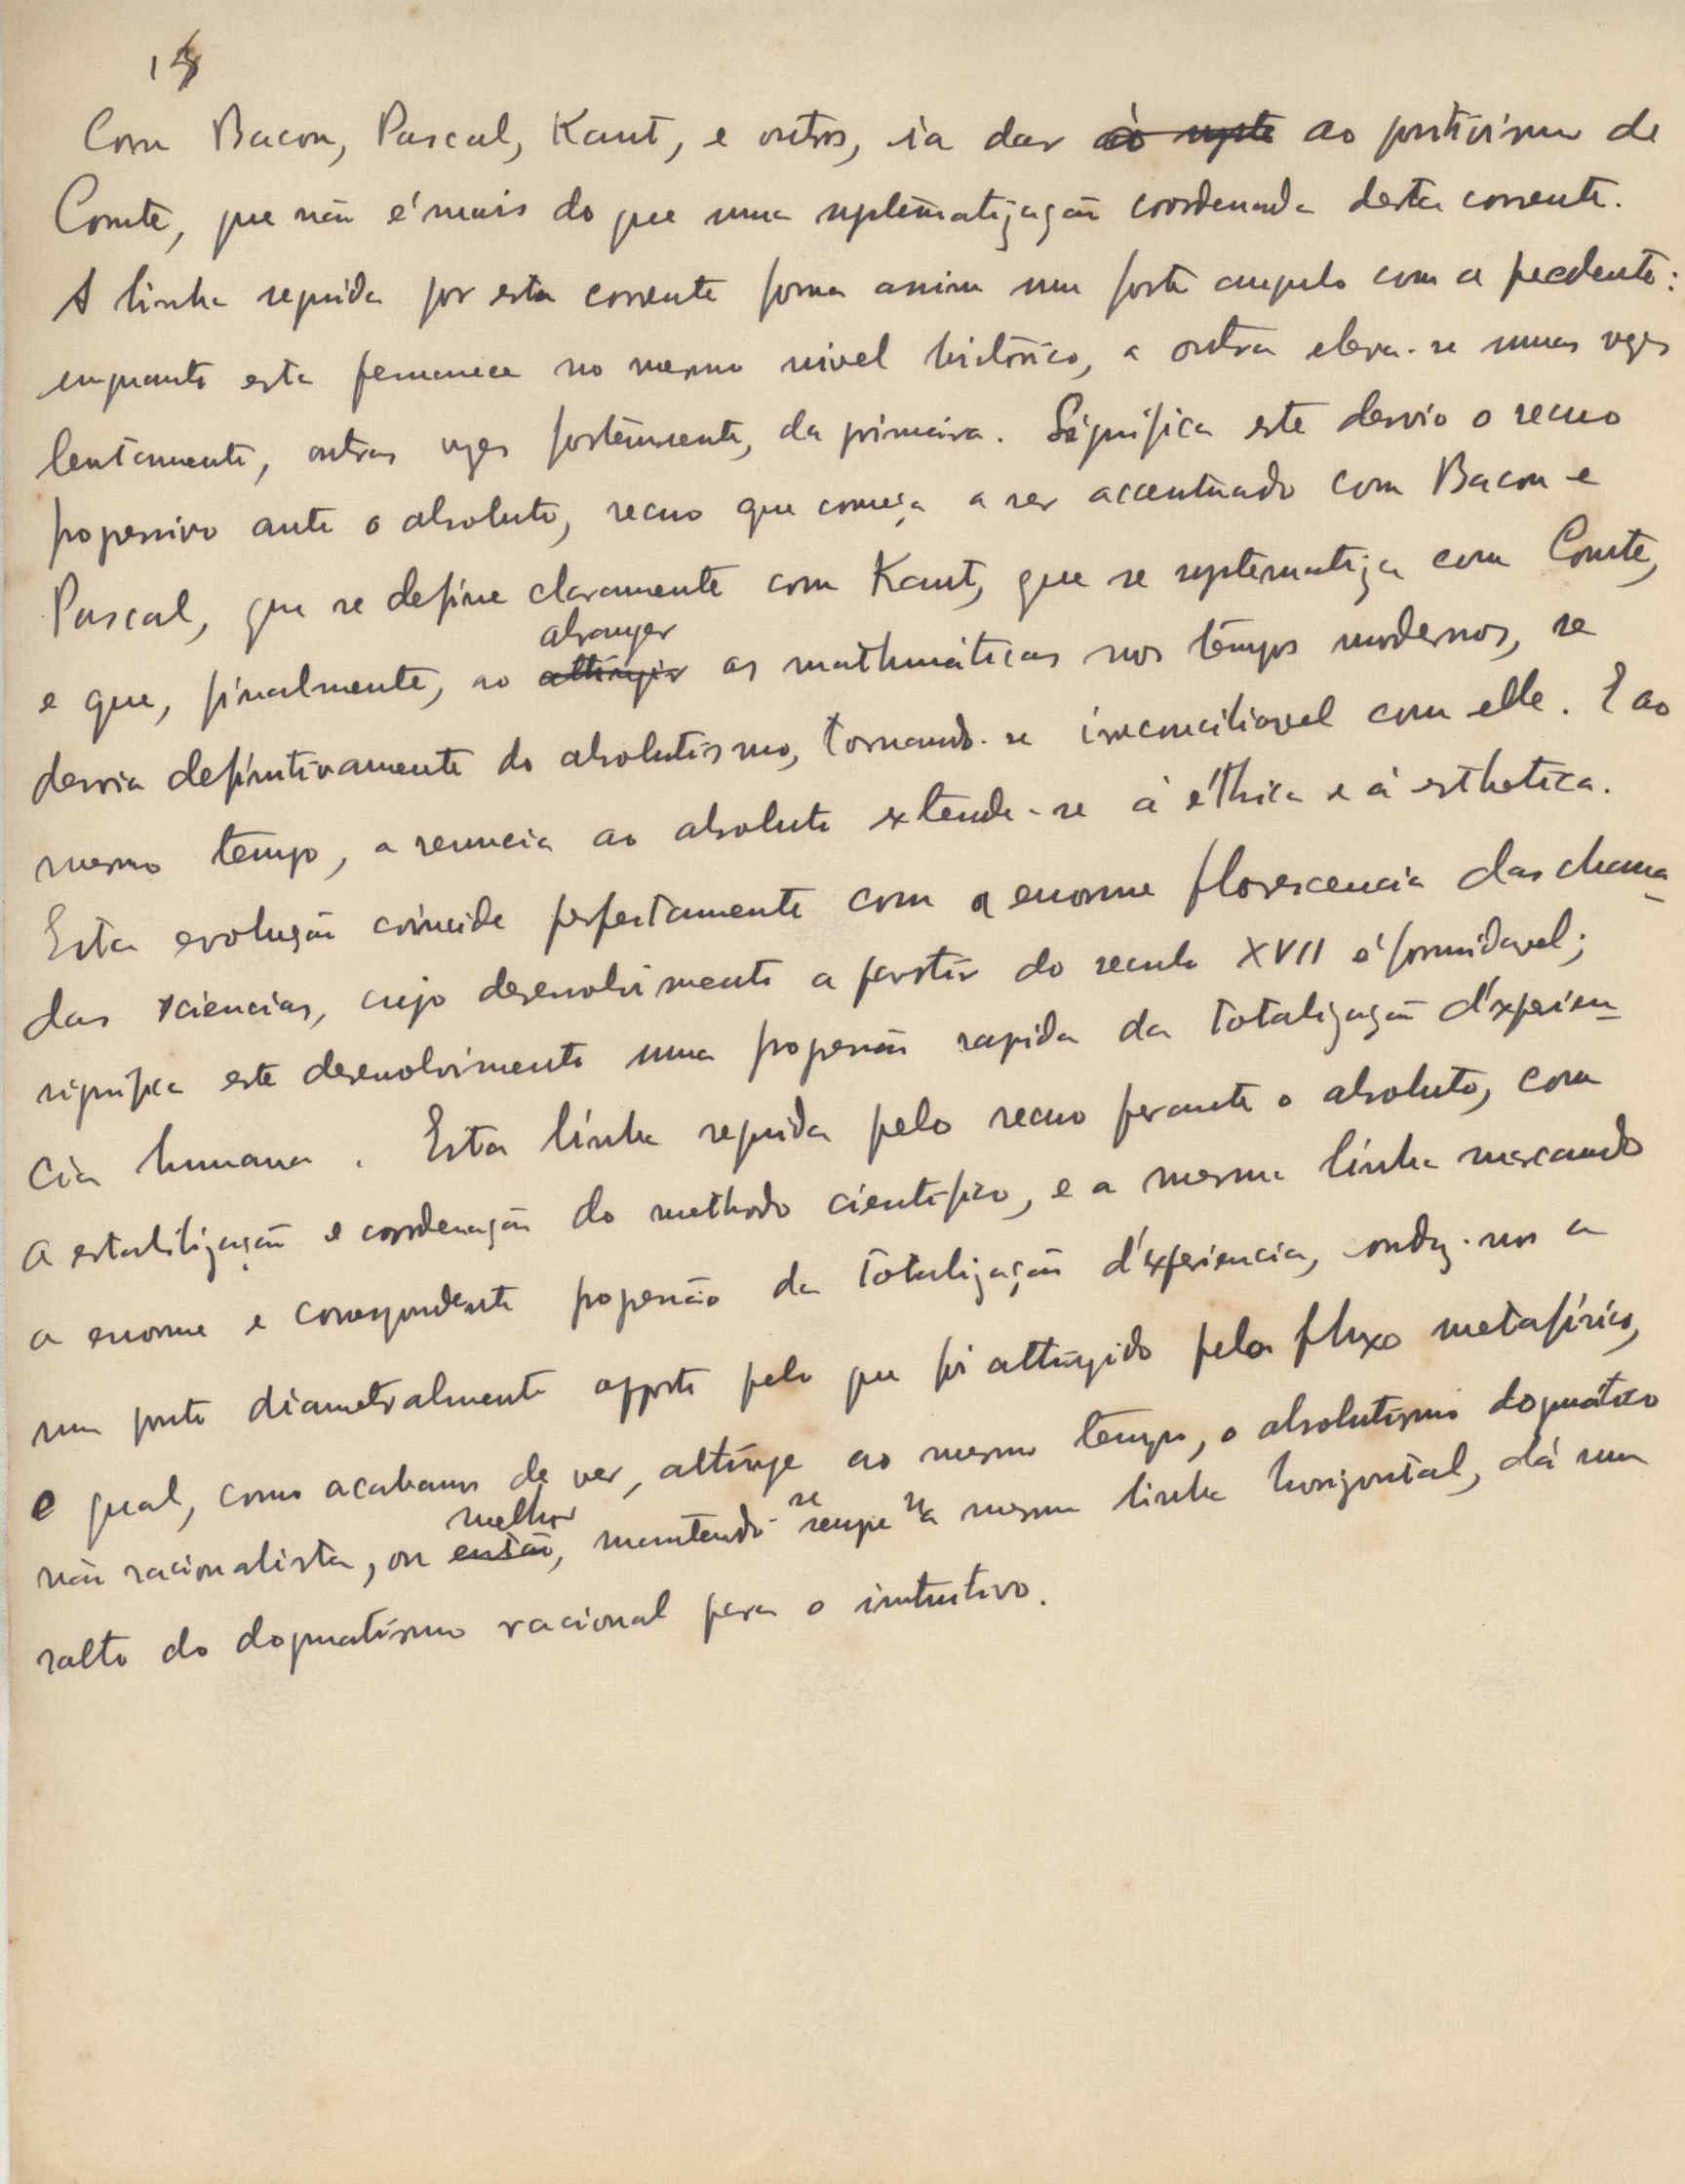 Com Bacon, Pascal, Kant, e outros, ia dar ao syste ao positivismo de
Comte, que não é mais do que uma systematização coordenada desta corrente.
A linha seguida por esta corrente forma assim um forte angulo com a precedente:
emquanto esta permanece no mesmo nivel historico, a outra eleva-se umas vezes
lentamente, outras vezes fortemente, da primeira. Significa este desvio o recuo
progressivo ante o absoluto, recuo que começa a ser accentuado com Bacon e
Pascal, que se define claramente com Kant, que se systematiza com Comte,
abranger
e que, finalmente, ao attingir as mathematicas nos tempos modernos, se
desvia definitivamente do absolutismo, tornando-se irreconciliavel com elle. E ao
mesmo tempo, a renuncia ao absoluto extende-se á éthica e á esthetica.
Esta evolução coincide perfeitamente com a enorme florescencia das chama-
das sciencias, cujo desenvolvimento a partir do seculo XVII é formidavel;
significa este desenvolvimento uma progressão rapida da totalização d'experien-
cia humana. Esta linha seguida pelo recuo perante o absoluto, com
a estabilização e coordenação do methodo cientifico, e a mesma linha marcando
a enorme e correspondente progressão da totalização d'experiencia, conduz-nos a
um ponto diametralmente opposto pelo que foi attingido pelo fluxo metafísico,
o qual, como acabamos de ver, attinge ao mesmo tempo, o absolutismo dogmático
melhor se na
não racionalista, ou então, mantendo- sempre a mesma linha horizontal, dá um
salto do dogmatismo racional para o intuitivo.